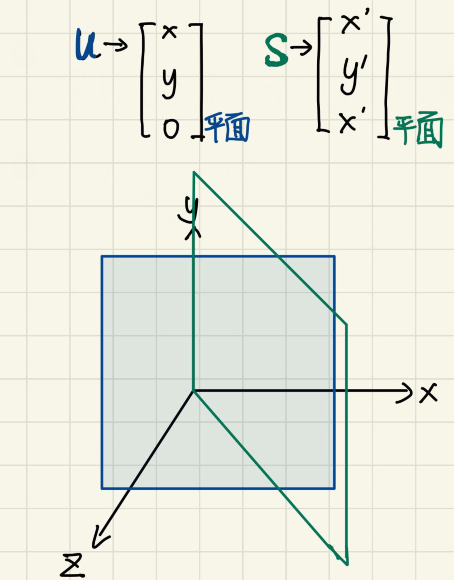 U → [x y 0] 平面
S → [x' y' x'] 平面
y
x
z